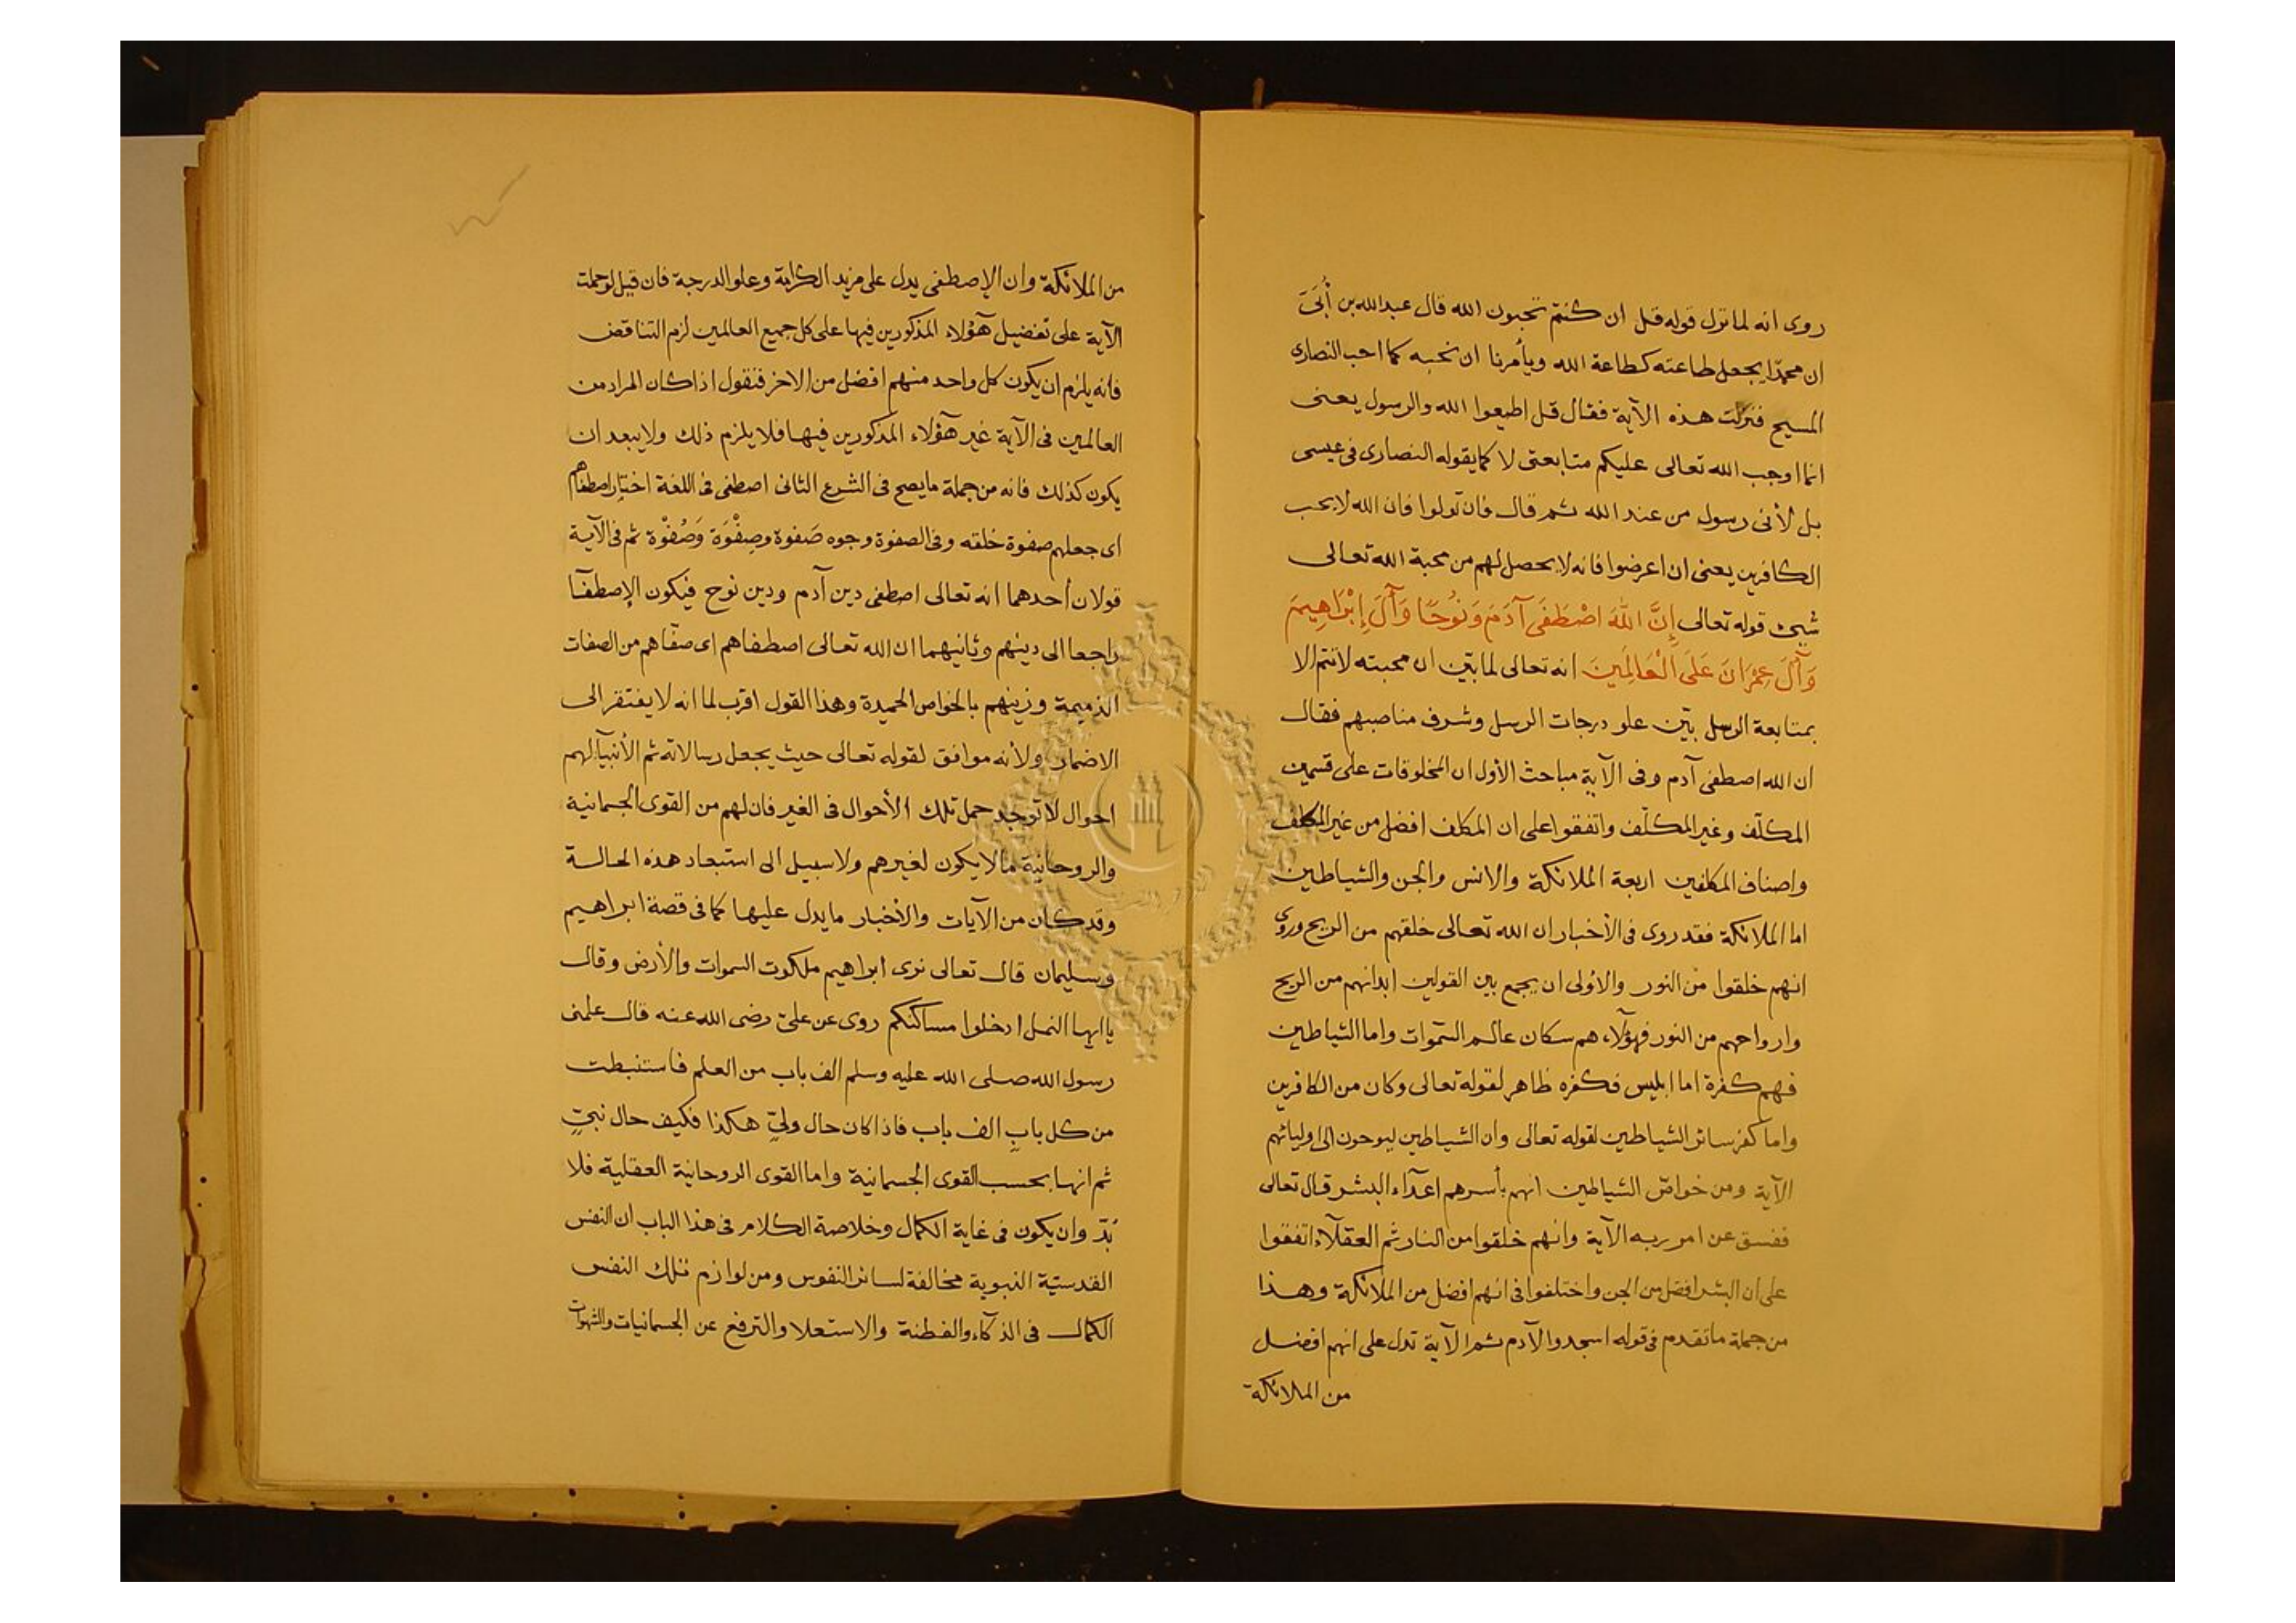 روى انه لما نزل قوله قل ان كنتم تحبون الله قال عبد الله بن أُبَىّ
ان محمدّا يجعل طاعته كطاعة الله ويأمرنا ان نحبه كما احب النصارى
المسيح فنزلت هذه الآية فقال قل اطيعوا الله والرسول يعنى
انما اوجب الله تعالى عليكم متابعتى لا كما يقوله النصارى فى عيسى
بل لأنى رسول من عند الله ثم قال فان تولوا فان الله لا يحب
الكافرين يعنى ان اعرضوا فانه لا يحصل لهم من محبة الله تعالى
شيئ قوله تعالى إِنَّ اللّٰهَ اصْطَفَى آدَمَ وَنُوحًا وَآلَ إِبْرَاهِيمَ
وَآلَ عِمْرَانَ عَلَى الْعَالَمِينَ انه تعالى لما بيّن ان محبته لا تتم الا
بمتابعة الرسل بيّن علو درجات الرسل وشرف مناصبهم فقال
ان الله اصطفى آدم وفى الآية مباحث الأول ان المخلوقات على قسمين
المكلّف وغير المكلّف واتفقوا على ان المكلف افضل من غير المكلف
واصناف المكلفين اربعة الملائكة والانس والجن والشياطين
اما الملائكة فقد روى فى الأخبار ان الله تعالى خلقهم من الريح وروى
انهم خلقوا من النور والاولى ان يجمع بين القولين ابدانهم من الريح
وارواحهم من النور فهؤلآء هم سكان عالم السّموات واما الشياطين
فهم كفرة اما ابليس فكفره ظاهر لقوله تعالى وكان من الكافرين
واما كفر سائر الشياطين لقوله تعالى وان الشياطين ليوحون الى اوليائهم
الآية ومن خواصّ الشياطين انهم بأسرهم اعدآء البشر قال تعالى
ففسق عن امر ربه الآية وانهم خلقوا من النار ثم العقلآء اتفقوا
على ان البشر افضل من الجن واختلفوا فى انهم افضل من الملائكة وهذا
من جملة ما تقدم فى قوله اسجدوا لآدم ثم الآية تدل على انهم افضل
من الملائكة
من الملائكة وان الإصطفى يدل على مزيد الكرامة وعلو الدرجة فان قيل لو حملت
الآية على تفضيل هؤلاء المذكورين فيها على كل جميع العالمين لزم التناقض
فانه يلزم ان يكون كل واحد منهم افضل من الاخر فنقول اذا كان المراد من
العالمين فى الآية غير هؤلاء المذكورين فيها فلا يلزم ذلك ولا يبعد ان
يكون كذلك فانه من جملة ما يصح فى الشرع الثانى اصطفى فى اللغة اختار اصطفاهم
اى جعلهم صفوة خلقه وفى الصفوة وجوه صَفوة وصِفْوَة وَصُفْوة ثم فى الآية
قولان أحدهما انه تعالى اصطفى دين آدم ودين نوح فيكون الإصطفآ
راجعا الى دينهم وثانيهما ان الله تعالى اصطفاهم اى صفّاهم من الصفات
الذميمة وزينهم بالخواص الحميدة وهذا القول اقرب لما انه لا يفتقر الى
الاضمار ولأنه موافق لقوله تعالى حيث يجعل رسالاته ثم الأنبيآ لهم
احوال لا توجد حمل تلك الأحوال فى الغير فان لهم من القوى الجسمانية
والروحانية ما لا يكون لغيرهم ولا سبيل الى استبعاد هذه الحالة
وقد كان من الآيات والأخبار ما يدل عليها كما فى قصة ابراهيم
وسليمان قال تعالى نرى ابراهيم ملكوت السموات والأرض وقال
يا ايها النمل ادخلوا مساكنكم روى عن علىّ رضى الله عنه قال علمنى
رسول الله صلى الله عليه وسلم الف باب من العلم فاستنبطت
من كل بابٍ الف باب فاذا كان حال ولىّ هكذا فكيف حال نبىّ
ثم انها بحسب القوى الجسمانية واما القوى الروحانية العقلية فلا
بُدّ وان يكون فى غاية الكمال وخلاصة الكلام فى هذا الباب ان النفس
القدسيّة النبوية مخالفة لسائر النفوس ومن لوازم تلك النفس
الكمال فى الذكآء والفطنة والاستعلا والترفع عن الجسمانيات والشهوات